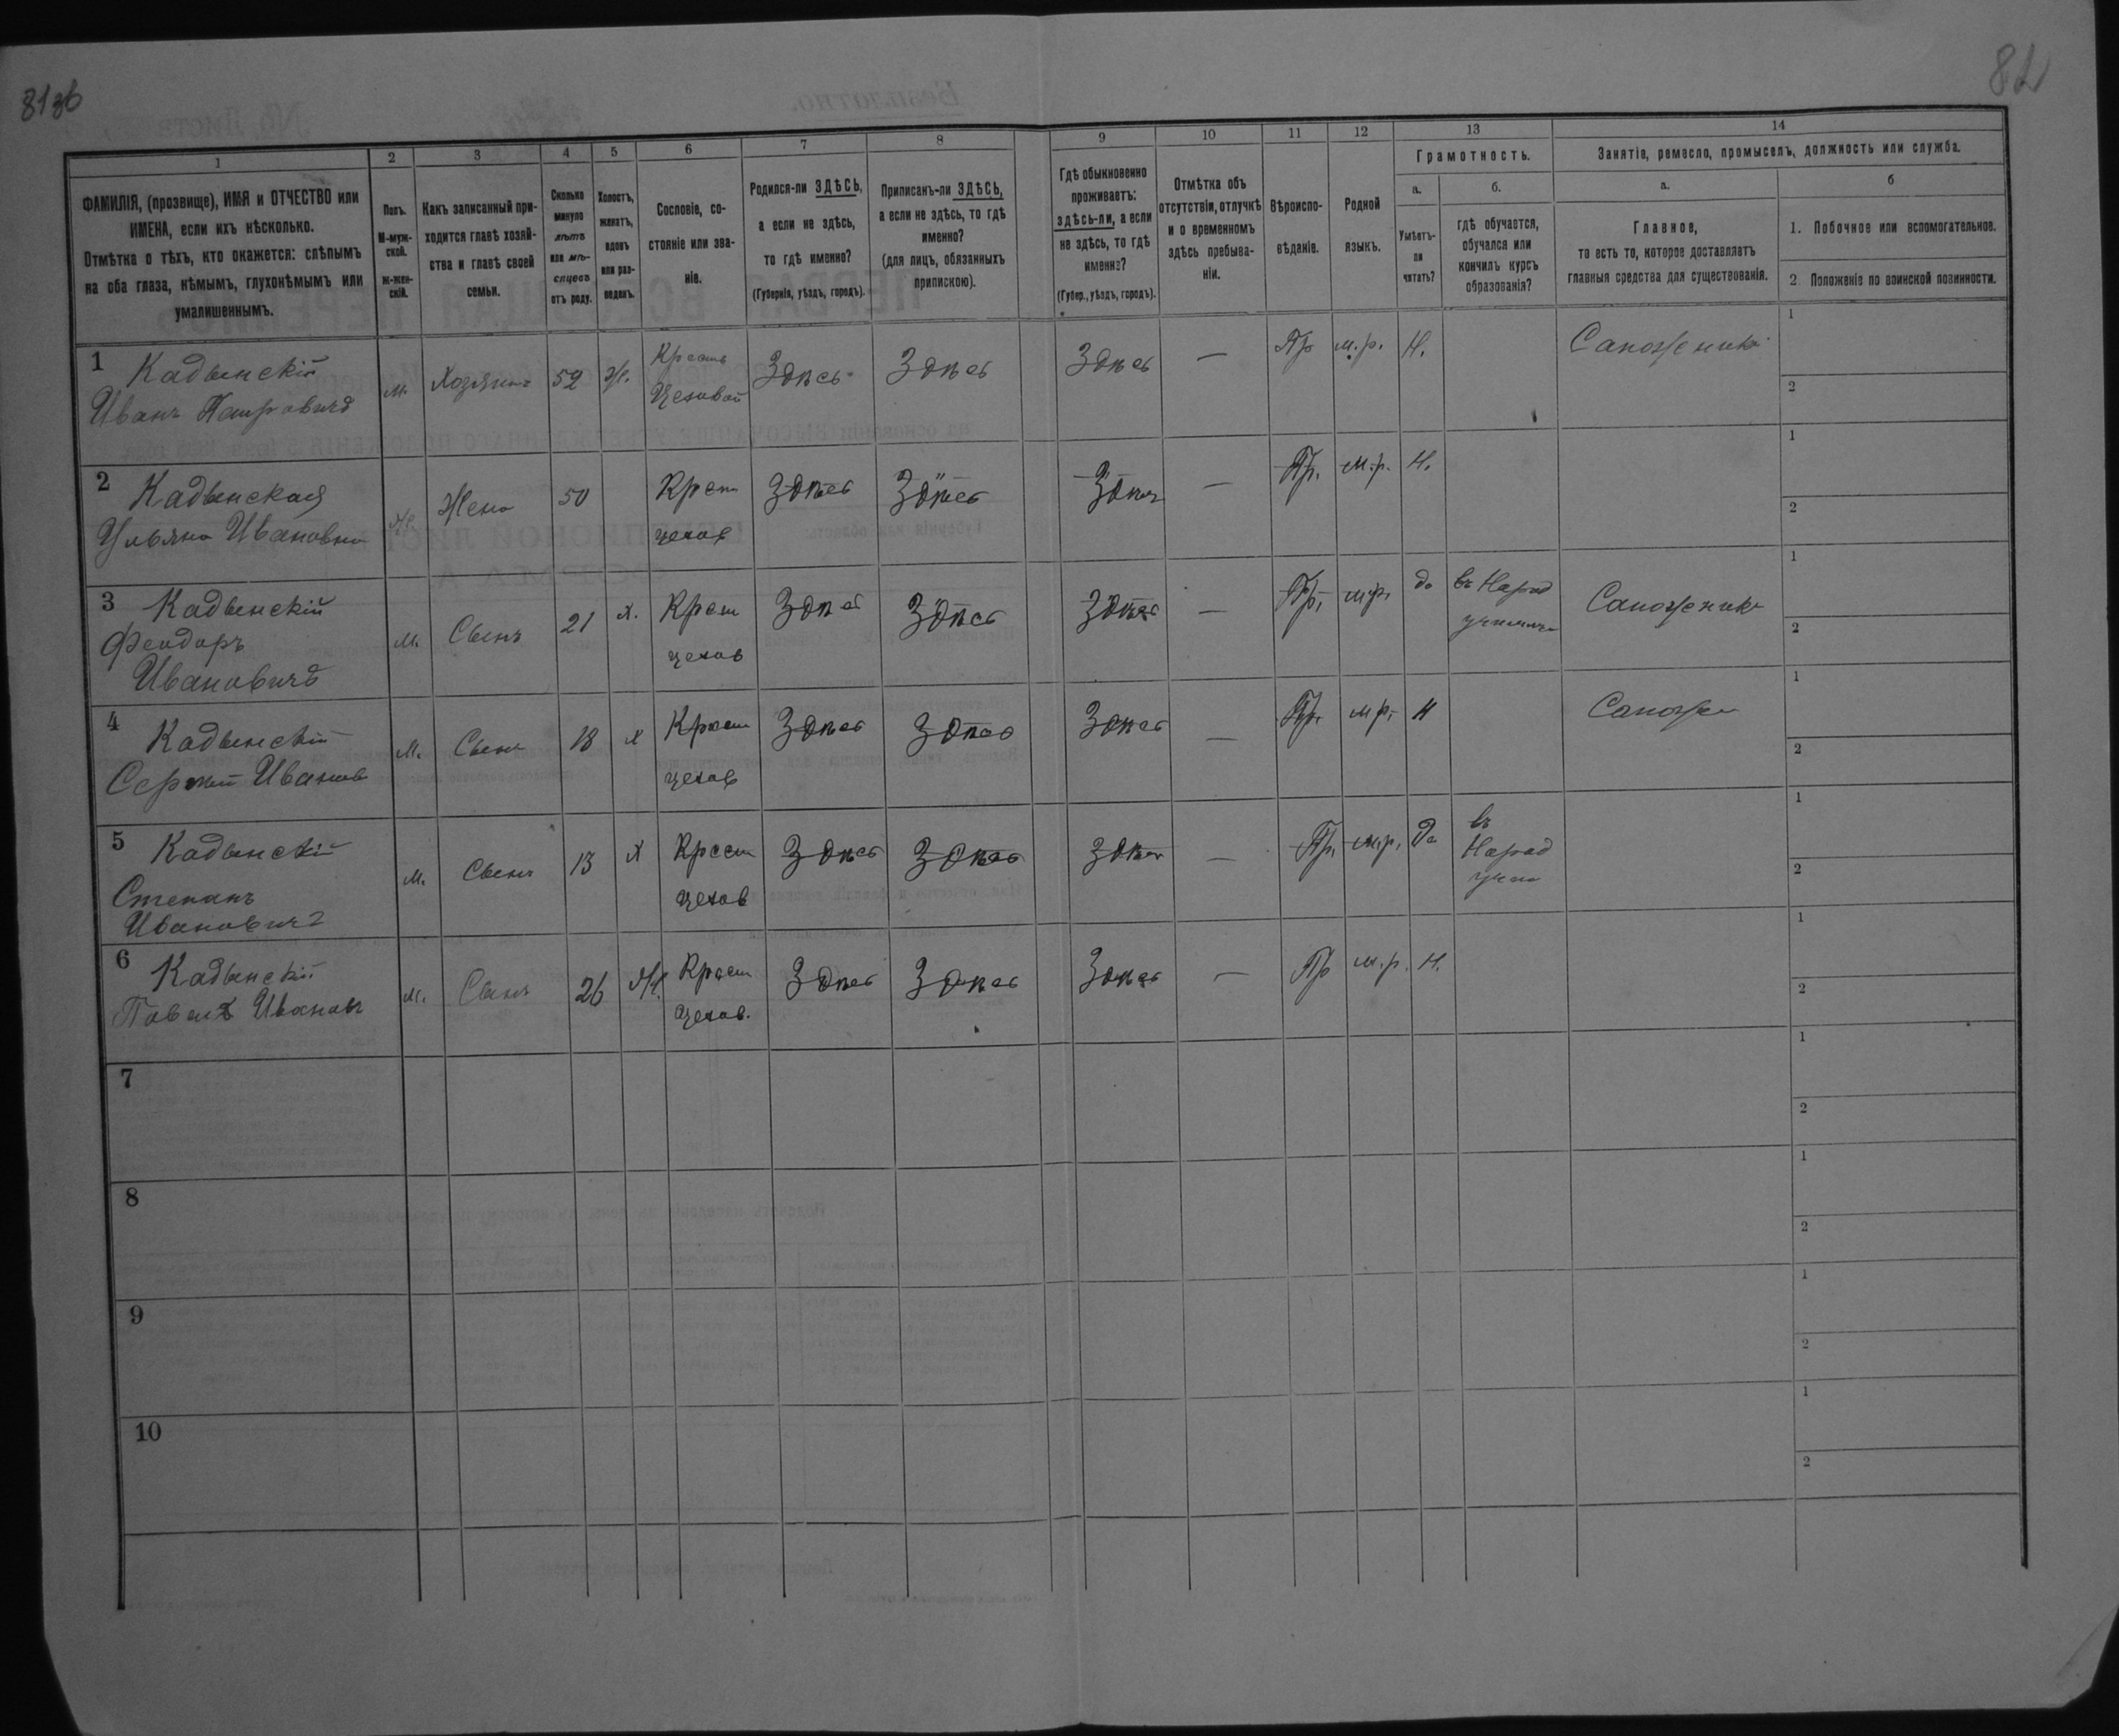 81 об
82
1 2 3 4 5 6 7 8 9 10 11 12 13 14
ФАМИЛІЯ, (прозвище), ИМЯ и ОТЧЕСТВО или
ИМЕНА, если ихъ нѣсколько.
Отмѣтка о тѣхъ, кто окажется: слѣпымъ
на оба глаза, нѣмымъ, глухонѣмымъ или
умалишеннымъ.
Полъ.
М-муж-
ской.
ж-жен-
скій.
Какъ записанный при-
ходится главѣ хозяй-
ства и главѣ своей
семьи.
Сколько
минуло
лѣтъ
или мѣ-
сяцевъ
отъ роду.
Холостъ,
женатъ,
вдовъ
или раз-
веденъ.
Сословіе, со-
стояніе или зва-
ніе.
Родился-ли ЗДѢСЬ,
а если не здѣсь,
то гдѣ именно?
(Губернія, уѣздъ, городъ).
Приписанъ-ли ЗДѢСЬ,
а если не здѣсь, то гдѣ
именно?
(для лицъ, обязанныхъ
припискою).
Гдѣ обыкновенно
проживаетъ:
здѣсь-ли, а если
не здѣсь, то гдѣ
именно?
(Губер., уѣздъ, городъ).
Отмѣтка объ
отсутствіи, отлучкѣ
и о временномъ
здѣсь пребыва-
ніи.
Вѣроиспо-
вѣданіе.
Родной
языкъ.
Грамотность.
а.
Умѣетъ-
ли
читать?
б.
гдѣ обучается,
обучался или
кончилъ курсъ
образованія?
Занятіе, ремесло, промыселъ, должность или служба.
а.
Главное,
то есть то, которое доставляетъ
главныя средства для существованія.
б
1. Побочное или вспомогательное.
2 Положеніе по воинской повинности.
1 Кадынскій
Иванъ Петровичъ
м. Хозяинъ 52 Ж.
Крестъ
Цеховой
Здѣсь Здѣсь Здѣсь — Пр м.р. Н. Сапожникъ
1
2
2 Кадынская
Ульяна Ивановна
Ж. Жена 50
Крест
цехов
Здѣсь Здѣсь Здѣсь — Пр. м.р. Н.
1
2
3 Кадынскій
Феодоръ
Ивановичъ
м. Сынъ 21 Х.
Крест
цехов
Здѣсь Здѣсь Здѣсь — Пр. м.р. да
въ Народ
училищ
Сапожникъ
1
2
4 Кадынскій
Сергѣй Иванов
м. Сынъ 18 Х
Крест
цехов
Здѣсь Здѣсь Здѣсь — Пр. м.р. Н Сапож
1
2
5 Кадынскій
Степанъ
Ивановичъ
м. Сынъ 13 Х
Крест
цехов
Здѣсь Здѣсь Здѣсь — Пр. м.р. Да
въ
Народ
учил
1
2
6 Кадынскій
Павелъ Ивановъ
м. Сынъ 26 Ж.
Крест
Цехов.
Здѣсь Здѣсь Здѣсь — Пр м.р. Н.
1
2
7
1
2
8
1
2
9
1
2
10
1
2